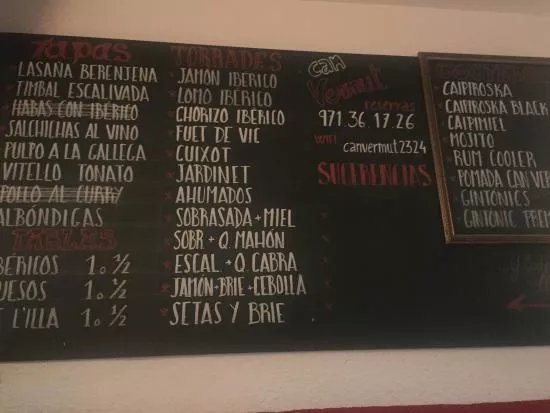 Tapas
LASAÑA BERENJENA
TIMBAL ESCALIVADA
HABAS CON IBÉRICO
SALCHICHAS AL VINO
PULPO A LA GALLEGA
VITELLO TONATO
POLLO AL CURRY
ALBÓNDIGAS
TABLES
BÉRICOS 1. ½
UESOS 1. ½
E L'ILLA 1. ½
TORRADES
JAMÓN IBÉRICO
LOMO IBÉRICO
CHORIZO IBÉRICO
FUET DE VIC
CUIXOT
JARDINET
AHUMADOS
SOBRASADA + MIEL
SOBR + Q. MAHÓN
ESCAL. + Q. CABRA
JAMÓN + BRIE + CEBOLLA
SETAS Y BRIE
can
Vermut
reservas
971.36.17.26
WIFI canvermut2324
SUGERENCIAS
CAIPIROSKA
CAIPIROSKA BLACK
CAIPIMIEL
MOJITO
RUM COOLER
POMADA CAN VER
GINTONICS
GINTONIC PREM